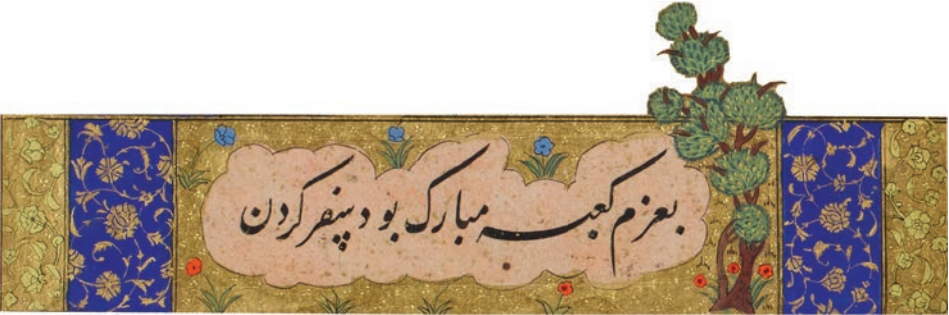 بعزم کعبه مبارک بود سفر کردن